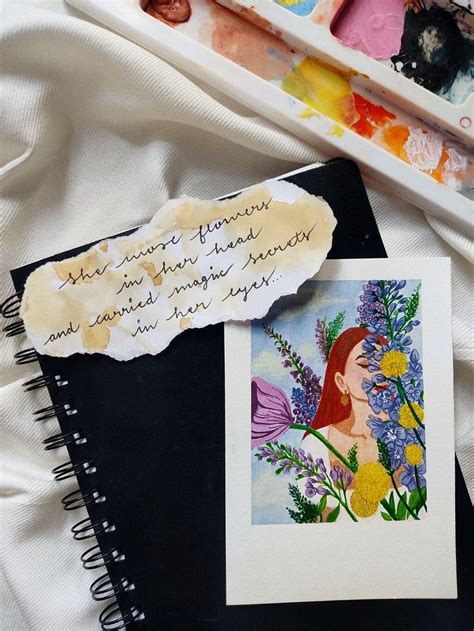 she wore flowers
in her head
and carried magic secrets
in her eyes...